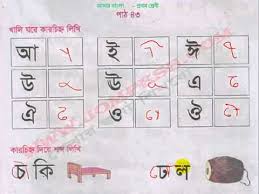 আমার বাংলা - প্রথম শ্রেণী
পাঠ ৪৩
খালি ঘরে কারচিহ্ন লিখি
আ া ই ি ঈ ী
উ ু ঊ ূ এ ে
ঐ ৈ ও ো ঔ ৌ
কারচিহ্ন দিয়ে শব্দ লিখি
চৌকি ঢোল